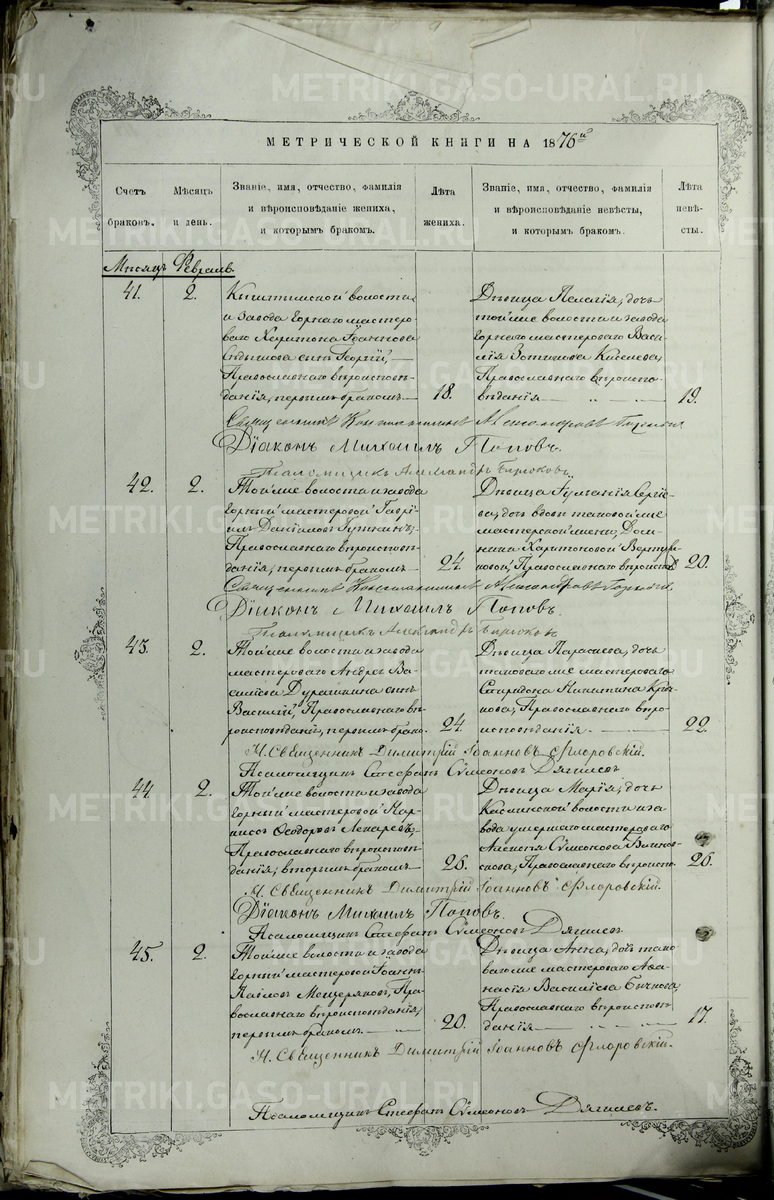 МЕТРИЧЕСКОЙ КНИГИ НА 1876й
Счетъ браковъ.
Мѣсяцъ и день.
Званіе, имя, отчество, фамилія
и вѣроисповѣданіе жениха,
и которымъ бракомъ.
Лѣта жениха.
Званіе, имя, отчество, фамилія
и вѣроисповѣданіе невѣсты,
и которымъ бракомъ.
Лѣта невѣсты.
Мѣсяцъ Февраль.
41.
2.
Кыштымской волости
и завода горнаго мастеро-
ваго Харитона Іоаннова
сынъ Георгій,
Православнаго вѣроисповѣ-
данія, первымъ бракомъ
18.
Дѣвица Пелагія, дочь
той же волости и завода
горнаго мастероваго Васи-
лія Зотикова Киселева,
Православнаго вѣроиспо-
вѣданія
19.
Священникъ Константинъ Александровъ
Діаконъ Михаилъ Поповъ.
Псаломщикъ Александръ Бирюковъ
42.
2.
Той же волости и завода
горный мастеровой Гаврі-
илъ Даніиловъ
Православнаго вѣроисповѣ-
данія, первымъ бракомъ
24.
Дѣвица Сергіе-
ва, дочь вдовы таковой же
мастерской жены, Дом-
ники Харитоновой
Православнаго вѣроисповѣд.
20.
Священникъ Константинъ Александровъ
Діаконъ Михаилъ Поповъ.
Псаломщикъ Александръ Бирюковъ
43.
2.
Той же волости и завода
мастероваго Андрея Ва-
сильева Дурашкина сынъ
Василій, Православнаго вѣ-
роисповѣданія, первымъ брако.
24.
Дѣвица Параскева, дочь
таковаго же мастероваго
Спиридона Никитина
Православнаго вѣро-
исповѣданія.
22.
М. Священникъ Димитрій Іоанновъ Флоровскій.
Псаломщикъ Стефанъ Сѵмеоновъ Дягилевъ
44
2.
Той же волости и завода
горный мастеровой Нар-
кисъ Ѳеодоровъ Лекаревъ,
Православнаго вѣроисповѣ-
данія, вторымъ бракомъ
26.
Дѣвица Марія, дочь
Каслинской волости и за-
вода умершаго мастероваго
Алексѣя Сѵмеонова
Православнаго вѣроиспо.
26.
М. Священникъ Димитрій Іоанновъ Флоровскій.
Діаконъ Михаилъ Поповъ.
Псаломщикъ Стефанъ Сѵмеоновъ Дягилевъ
45.
2.
Той же волости и завода
горный мастеровой Іоаннъ
Павловъ Мещеряковъ, Пра-
вославнаго вѣроисповѣданія,
первымъ бракомъ
20.
Дѣвица Анна, дочь тако-
ваго же мастероваго Аѳа-
насія Васильева Бычкова,
Православнаго вѣроисповѣ-
данія
17.
М. Священникъ Димитрій Іоанновъ Флоровскій.
Псаломщикъ Стефанъ Сѵмеоновъ Дягилевъ.
METRIKI.GASO-URAL.RU